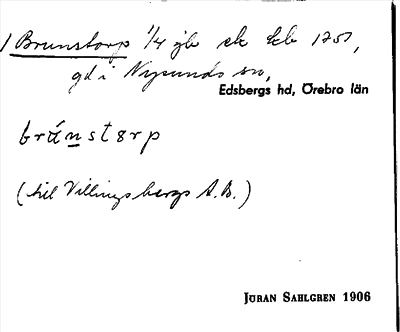 1 Brunstorp 1/4 jb sk kb 1257,
gd i Nysunds sn,
Edsbergs hd, Örebro län
brúnstɵrp
(till Villingsbergs A.B.)
JÖRAN SAHLGREN 1906